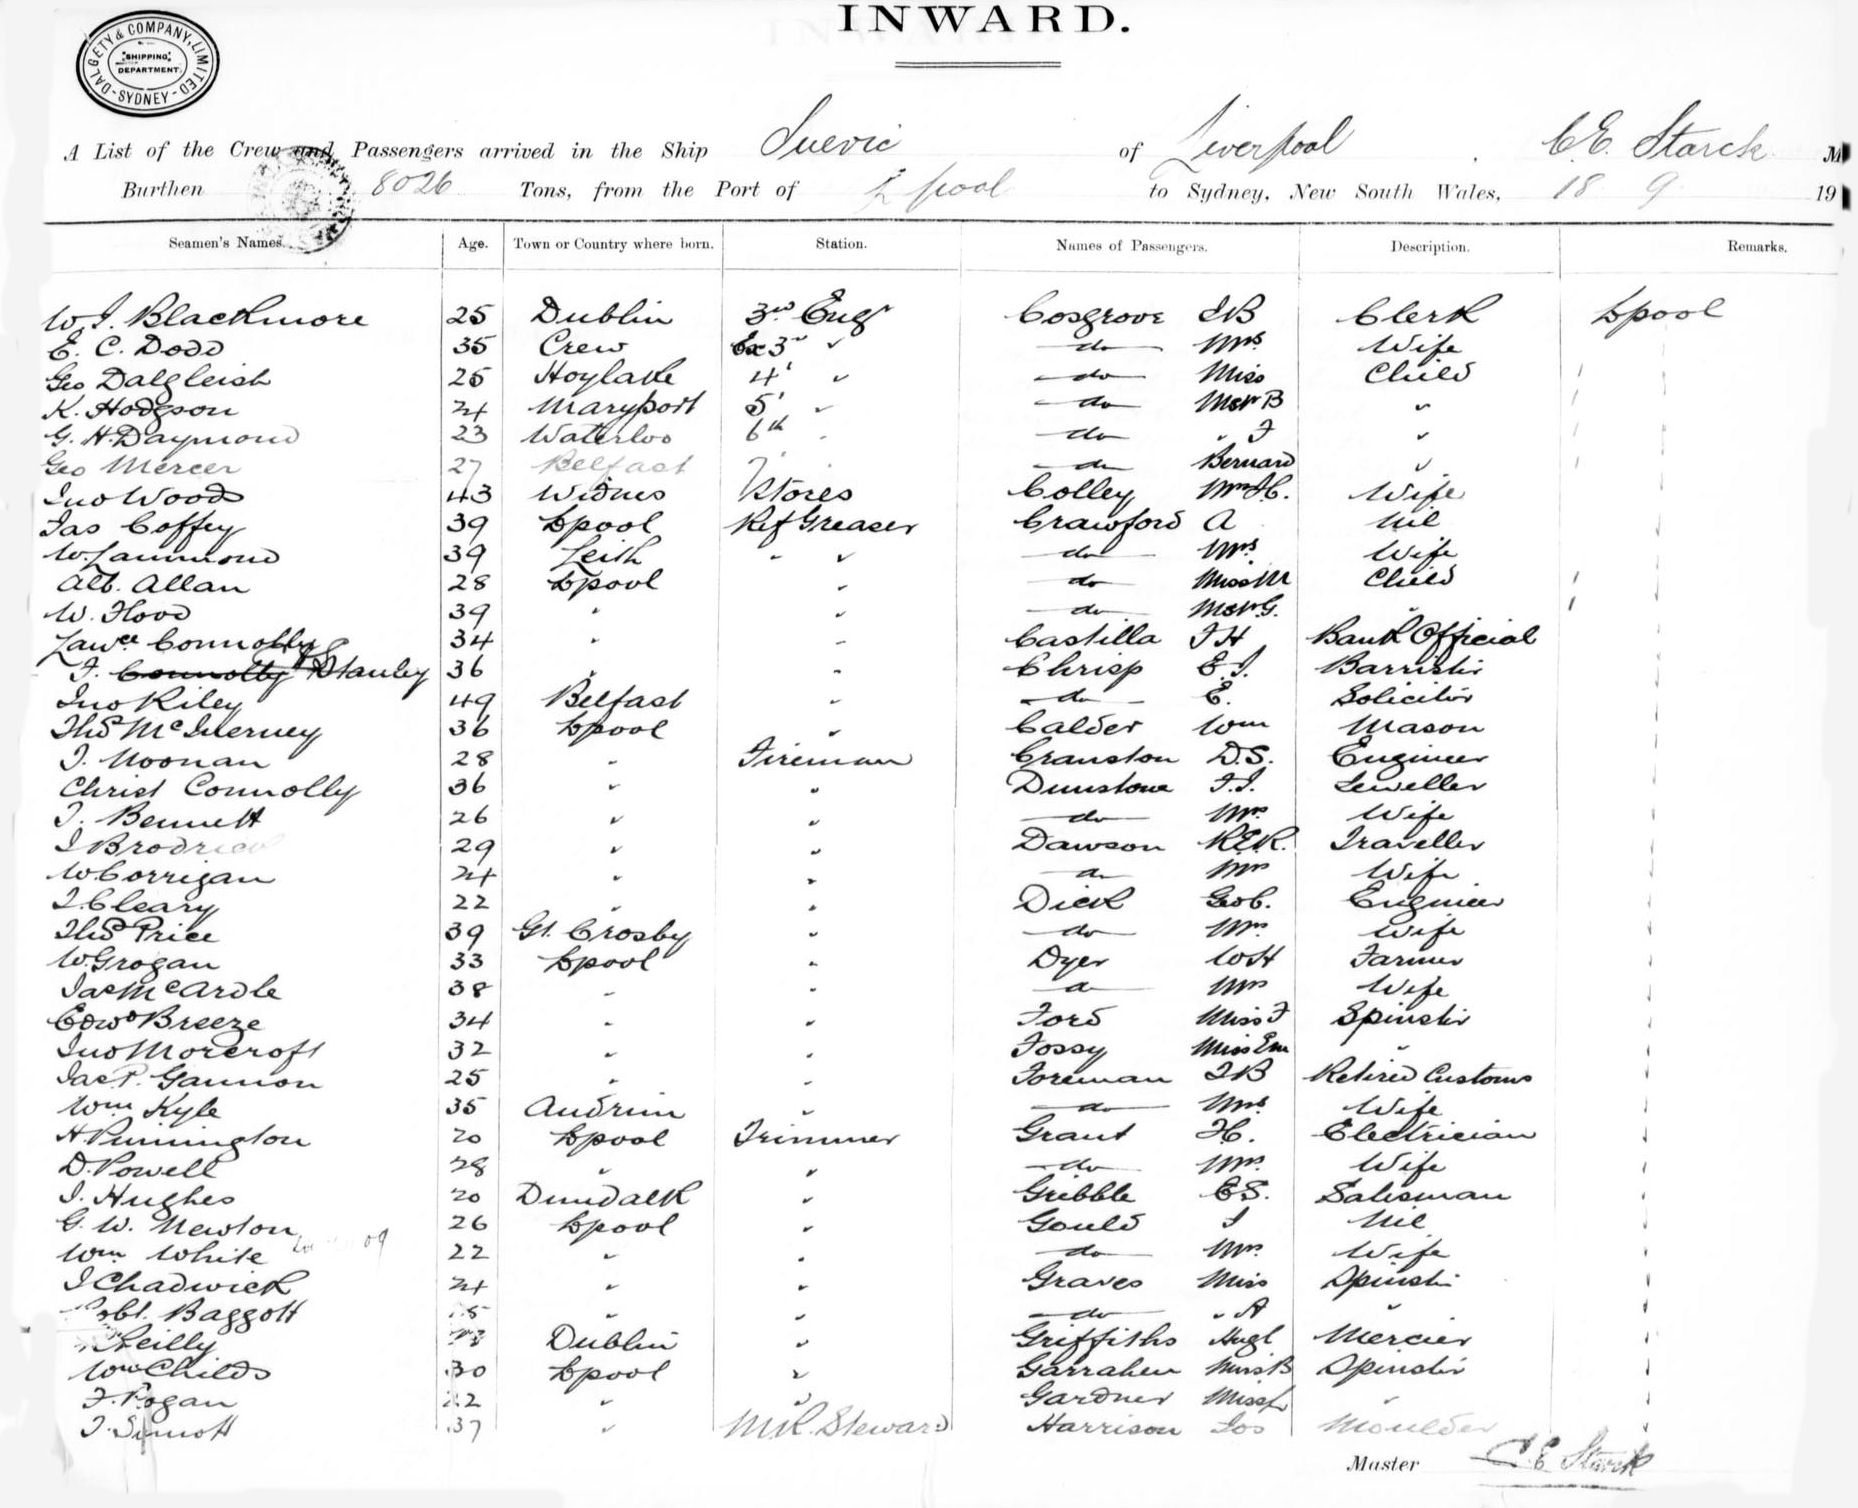 INWARD.
DALGETY & COMPANY, LIMITED
SHIPPING
DEPARTMENT.
SYDNEY
A List of the Crew and Passengers arrived in the Ship Suevic of Liverpool C.E. Starck M
Burthen 8026 Tons, from the Port of Lpool to Sydney, New South Wales, 18 9 19
Seamen's Names. Age. Town or Country where born. Station. Names of Passengers. Description. Remarks.
W J. Blackmore 25 Dublin 3rd Eng Cosgrove J B Clerk Lpool
E. C. Dodd 35 Crew Ex 3rd " do Mrs Wife
Geo Dalgleish 25 Hoylake 4 " do Miss Child
K. Hodgson 24 Maryport 5 " do Mstr B "
G. H. Daymond 23 Waterloo 6th " do " F "
Geo Mercer 27 Belfast 7 do Bernard "
Jno Woods 43 Widnes Stores Colley Mrs H. Wife
Jas Coffey 39 Lpool Ref Greaser Crawford A Nil
W. Lammond 39 Leith " " do Mrs Wife
Alb. Allan 28 Lpool " do Miss M Child
W. Flood 39 " " do Mstr G. "
Lawce Connolly 34 " " Castilla F H Bank Official
F. Connolly Stanley 36 " " Chrisp E. J. Barrister
Jno Riley 49 Belfast " do E. Solicitor
Thos McInerney 36 Lpool " Calder Wm Mason
J. Noonan 28 " Fireman Cranston D.S. Engineer
Christ Connolly 36 " " Dunstone F.J. Jeweller
T. Bennett 26 " " do Mrs Wife
J Brodrick 29 " " Dawson R.E.R. Traveller
W Corrigan 24 " " do Mrs Wife
J. Cleary 22 " " Dick Geo C. Engineer
Thos Price 39 Gt. Crosby " do Mrs Wife
W. Grogan 33 Lpool " Dyer W H Farmer
Jas McArdle 38 " " do Mrs Wife
Edwd Breeze 34 " " Ford Miss F Spinster
Jno Morcroft 32 " " Fossy Miss Em "
Jas P. Gannon 25 " " Foreman J B Retired Customs
Wm Kyle 35 Andrim " do Mrs Wife
H Pinnington 20 Lpool Trimmer Grant H. Electrician
D. Powell 28 " " do Mrs Wife
J. Hughes 20 Dundalk " Gribble E S. Salesman
G. W. Newton 26 Lpool " Gould J Nil
Wm White 22 " " do Mrs Wife
J Chadwick 24 " " Graves Miss Spinster
Robt. Baggott " " do " A "
Reilly Dublin " Griffiths Hugh Mercier
Wm Childs 30 Lpool " Garrahen Miss B Spinster
F. Fogan 22 " " Gardner Miss L "
J. Sinnott 37 " M.R. Steward Harrison Jos Moulder
Master C.E. Starck